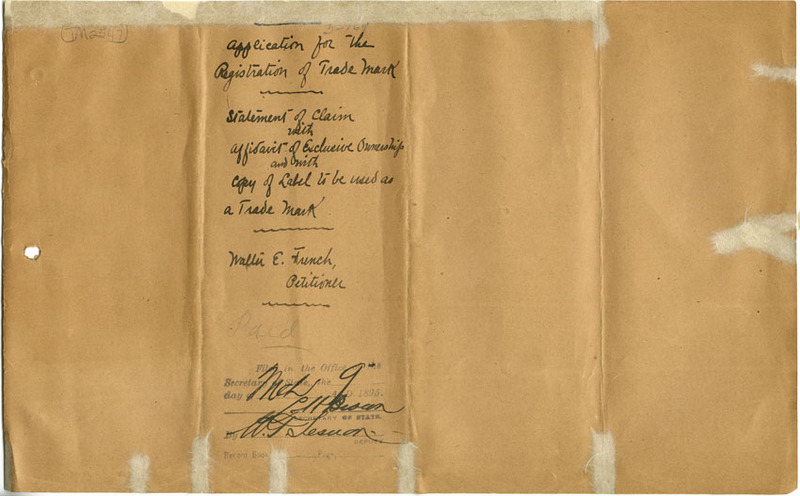 TM2547
Application for the
Registration of Trade Mark
Statement of Claim
with
Affidavit of Exclusive Ownership
and with
Copy of Label to be used as
a Trade Mark
Walter E. French,
Petitioner
Paid
Filed in the Office of the
Secretary of State, the 9
day Mch A.D. 1895.
SECRETARY OF STATE.
By
DEPUTY
Record Book Page